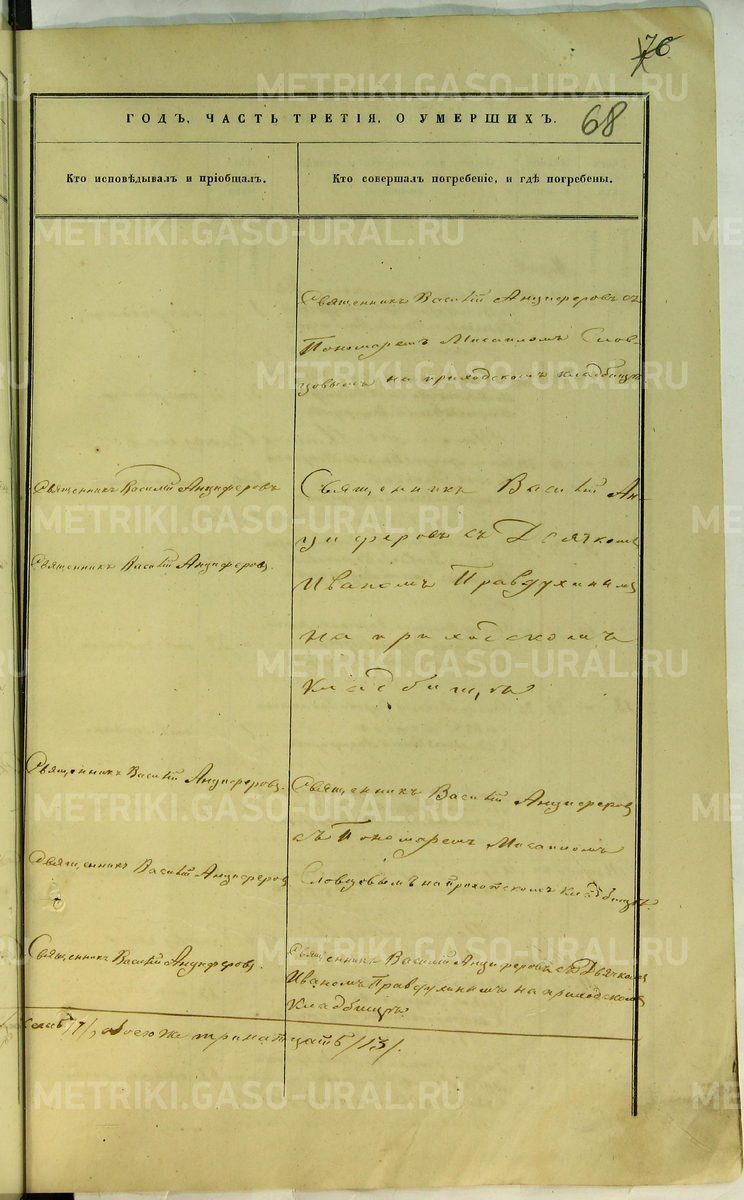 76
ГОДЪ, ЧАСТЬ ТРЕТІЯ, О УМЕРШИХЪ.
68
Кто исповѣдывалъ и пріобщалъ.
Кто совершалъ погребеніе, и гдѣ погребены.
Священникъ Василій Анциферовъ съ
Пономаремъ Мисаиломъ Слов-
цовымъ на приходскомъ кладбищѣ
Священникъ Василій Анциферовъ
Священникъ Василій Анциферовъ.
Священникъ Василій Ан-
циферовъ съ Дьячкомъ
Иваномъ Правдухинымъ
на приходскомъ
кладбищѣ.
Священникъ Василій Анциферовъ.
Священникъ Василій Анциферовъ
Священникъ Василій Анциферовъ
съ Пономаремъ Мисаиломъ
Словцовымъ на прихотскомъ кладбищѣ.
Священникъ Василій Анциферовъ.
Священникъ Василій Анциферовъ съ Дьячкомъ
Иваномъ Правдухинымъ на приходскомъ
кладбищѣ.
/7/, обоего же тринатцать /13/.
METRIKI.GASO-URAL.RU